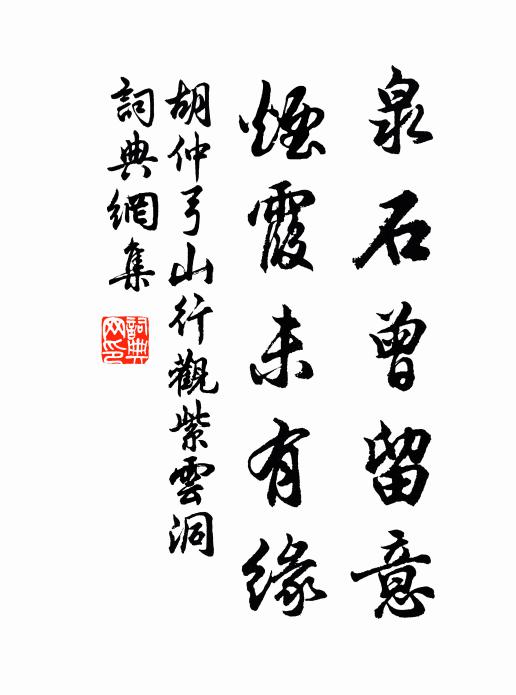 泉石曾留意
煙霞未有緣
胡仲弓山行觀紫雲洞
詞典網集
詞典網印